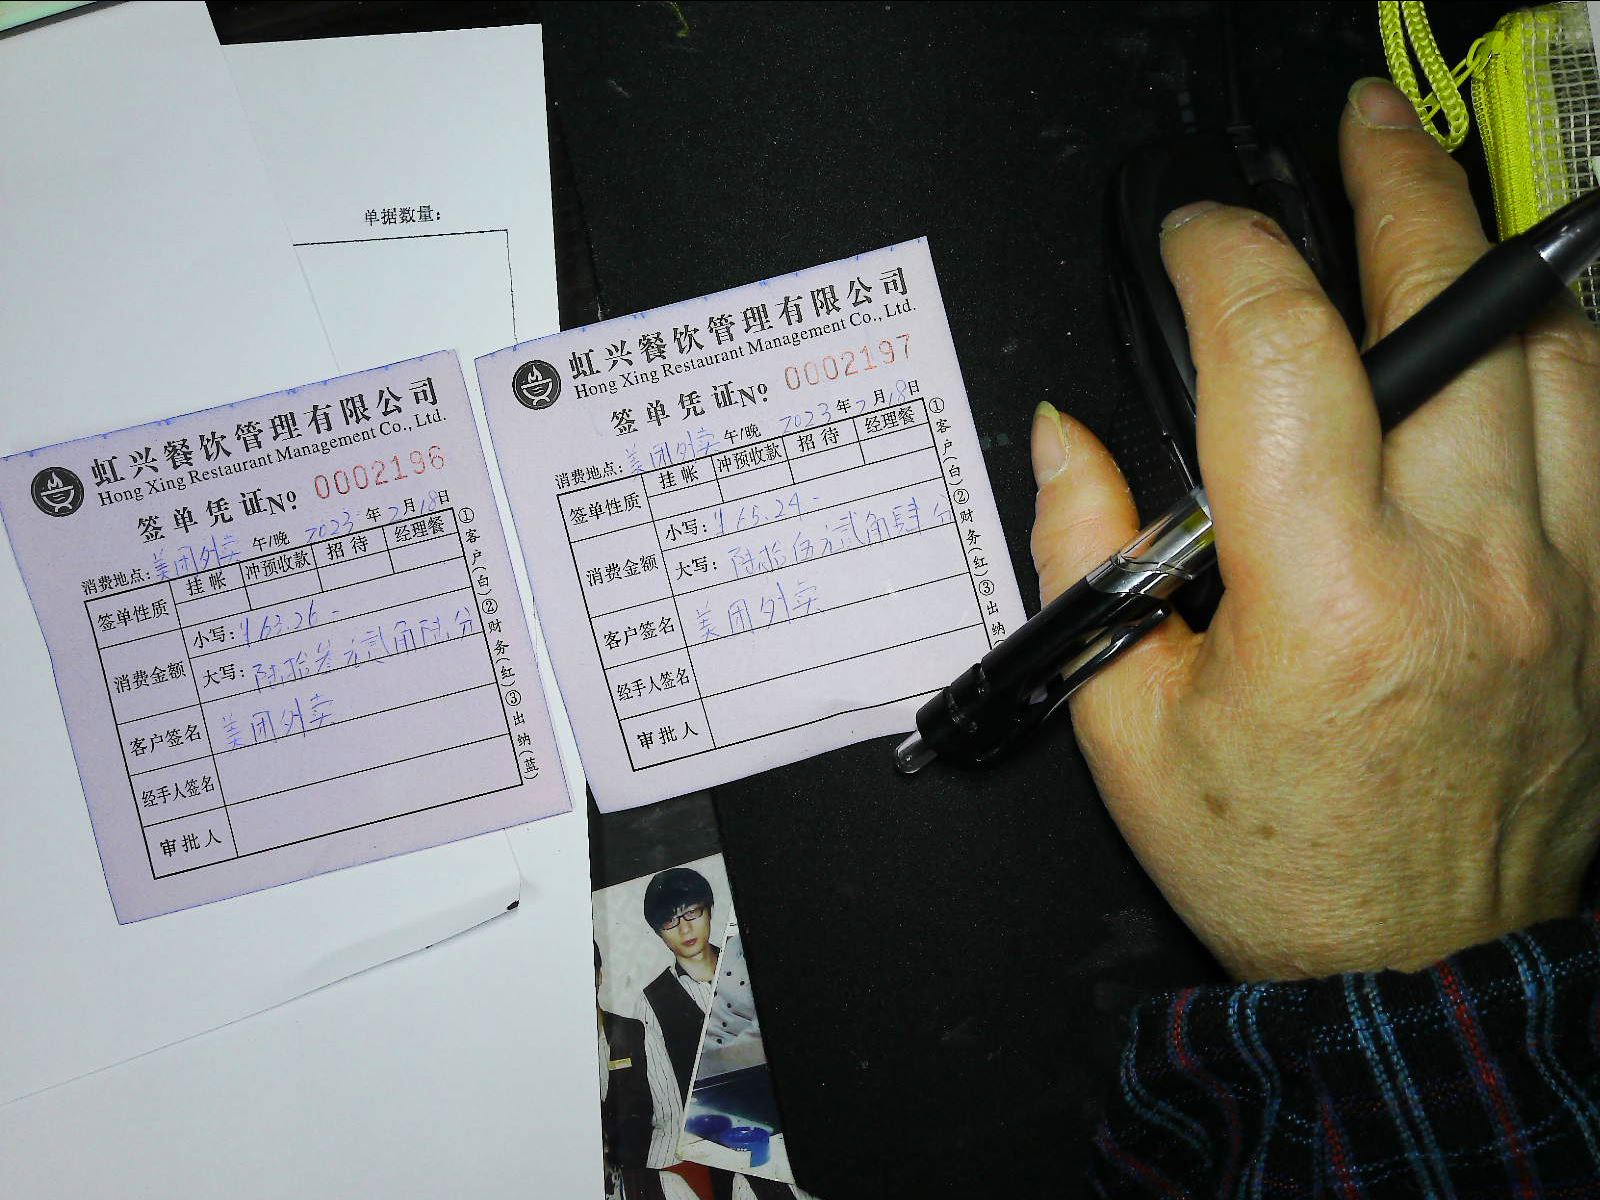 单据数量：
虹兴餐饮管理有限公司
Hong Xing Restaurant Management Co., Ltd.
签单凭证№ 0002196
消费地点：美团外卖 午/晚 2023年2月18日
签单性质 挂帐 冲预收款 招待 经理餐
消费金额 小写：¥63.26-
大写：陆拾叁元贰角陆分
客户签名 美团外卖
经手人签名
审批人
①客户（白）②财务（红）③出纳（蓝）
虹兴餐饮管理有限公司
Hong Xing Restaurant Management Co., Ltd.
签单凭证№ 0002197
消费地点：美团外卖 午/晚 2023年2月18日
签单性质 挂帐 冲预收款 招待 经理餐
消费金额 小写：¥65.24-
大写：陆拾伍元贰角肆分
客户签名 美团外卖
经手人签名
审批人
①客户（白）②财务（红）③出纳（